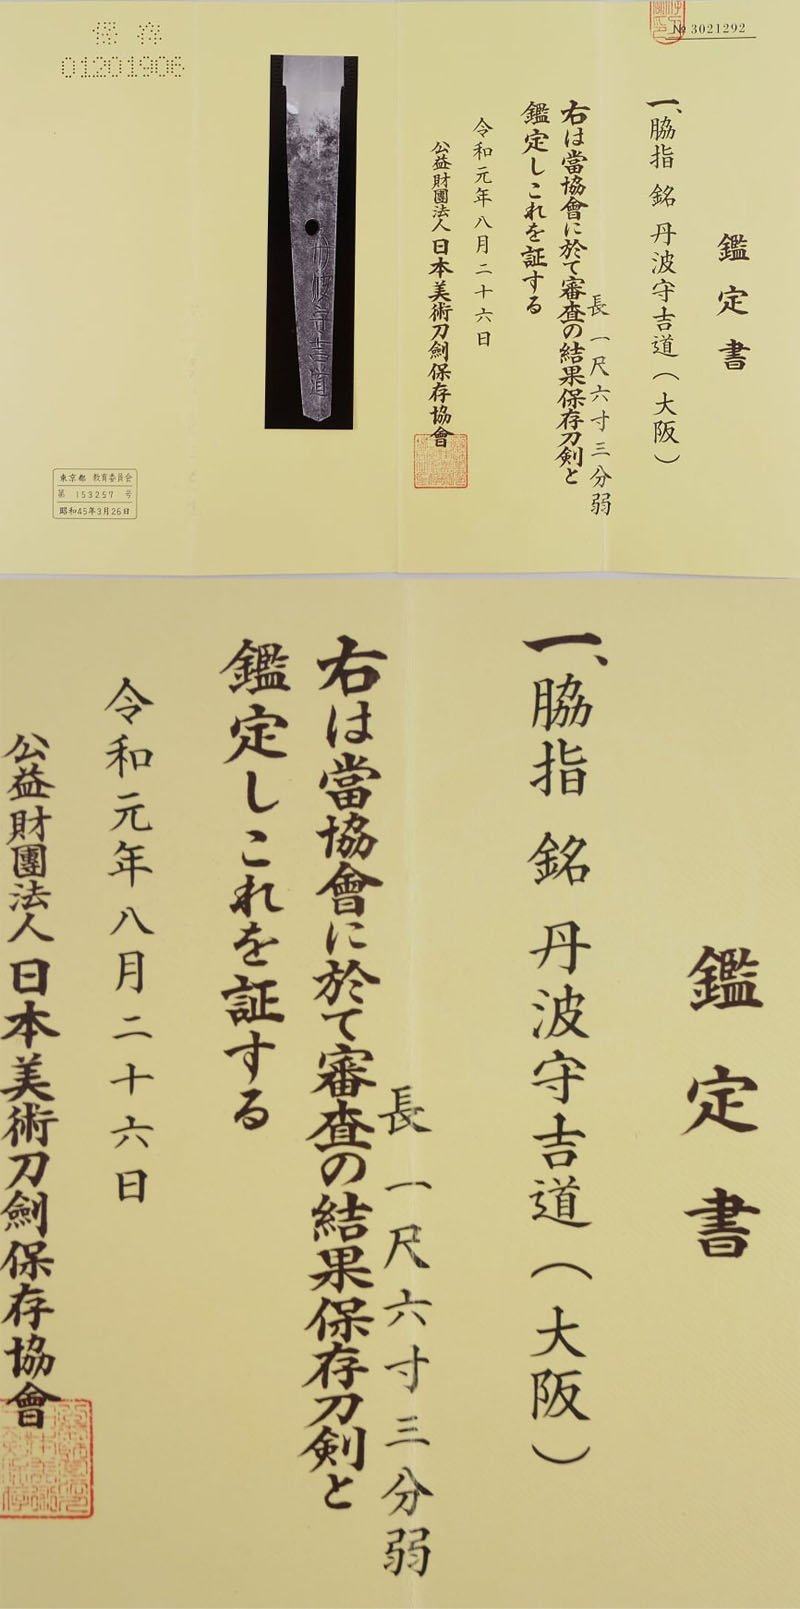 № 3021292
鑑定書
一、脇指 銘 丹波守吉道（大阪）
長 一尺六寸三分弱
右は當協會に於て審査の結果保存刀剣と
鑑定しこれを証する
令和元年八月二十六日
公益財團法人日本美術刀劍保存協會
丹波守吉道
保存
01201906
東京都 教育委員会
第 153257 号
昭和45年3月26日
鑑定書
一、脇指 銘 丹波守吉道（大阪）
長 一尺六寸三分弱
右は當協會に於て審査の結果保存刀剣と
鑑定しこれを証する
令和元年八月二十六日
公益財團法人日本美術刀劍保存協會